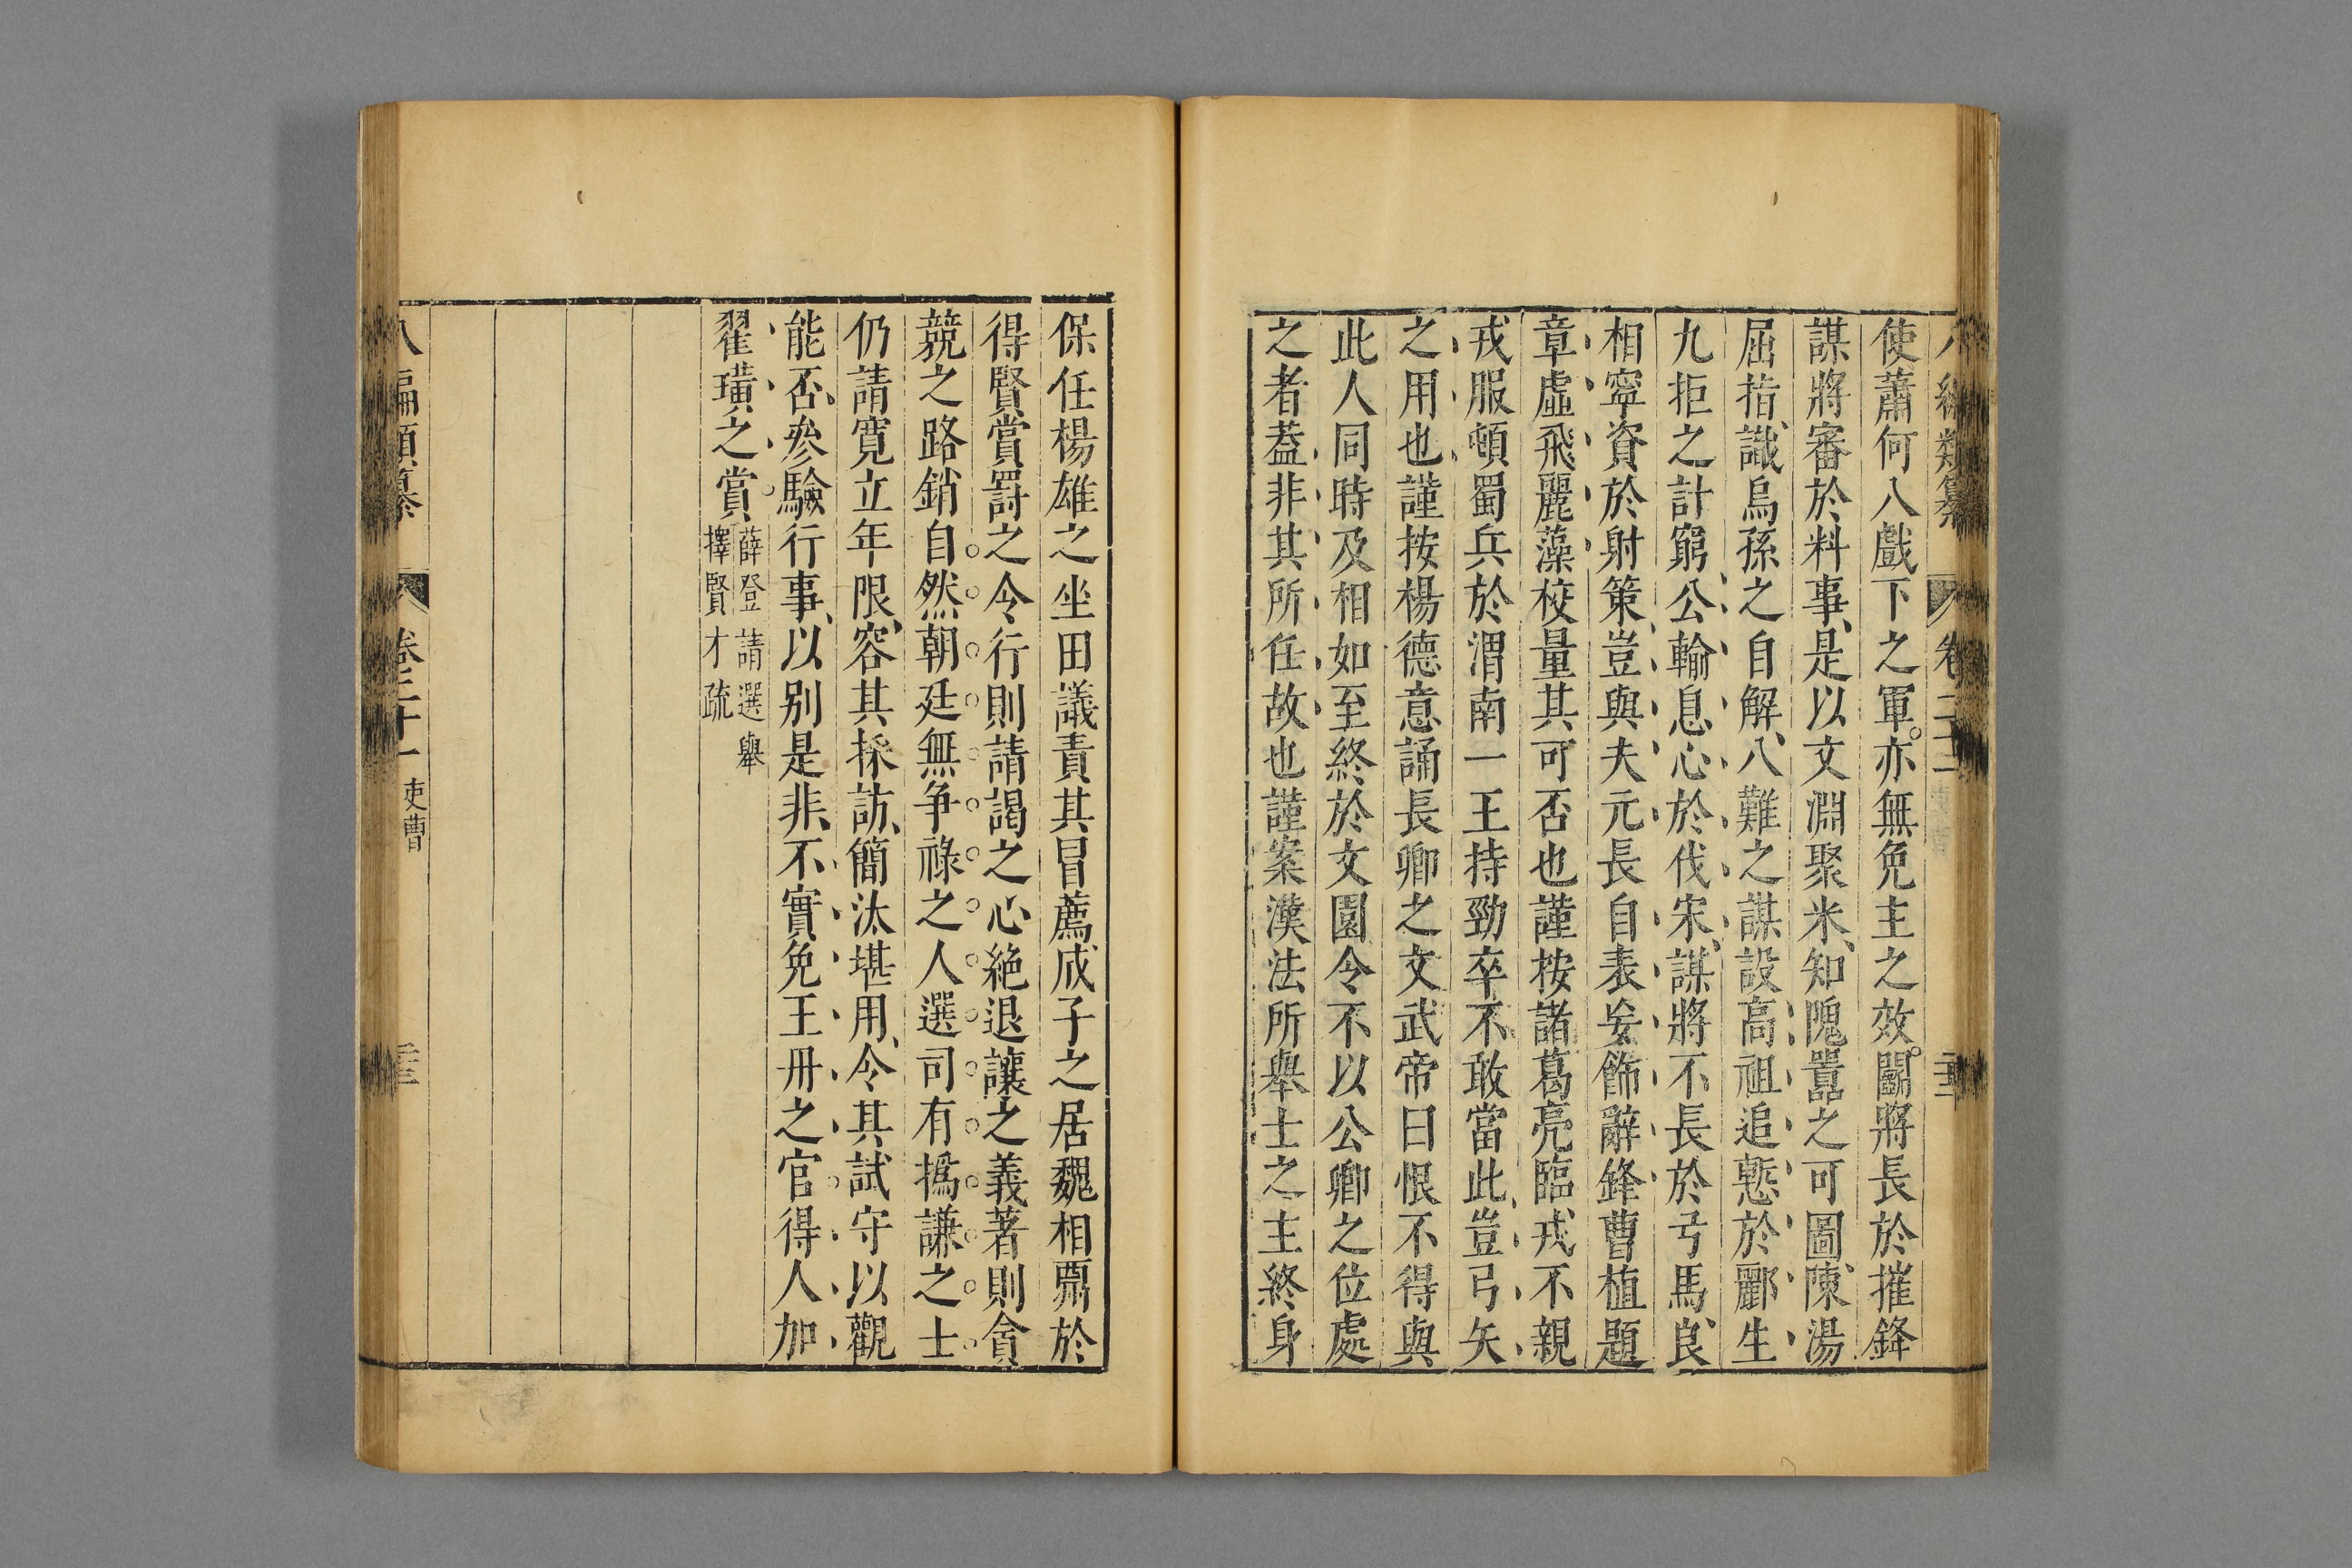 使蕭何入戲下之軍亦無免主之效鬭將長於摧鋒
謀將審於料事是以文淵聚米知隗囂之可圖陳湯
屈指識烏孫之自解八難之謀設高祖追慙於酈生
九拒之計窮公輸息心於伐宋謀將不長於弓馬良
相寧資於射策豈與夫元長自表妄飾辭鋒曹植題
章虛飛麗藻校量其可否也謹按諸葛亮臨戎不親
戎服頓蜀兵於渭南一王持勁卒不敢當此豈弓矢
之用也謹按楊德意誦長卿之文武帝曰恨不得與
此人同時及相如至終於文園令不以公卿之位處
之者葢非其所任故也謹案漢法所舉士之主終身
保任楊雄之坐田議責其冒薦成子之居魏相酬於
得賢賞罰之令行則請謁之心絕退讓之義著則貪
競之路銷自然朝廷無爭祿之人選司有撝謙之士
仍請寬立年限容其採訪簡汰堪用令其試守以觀
能否參驗行事以別是非不實免王丹之官得人加
翟璜之賞
薛登請選舉
擇賢才疏
八編類纂 卷二十一 吏曹